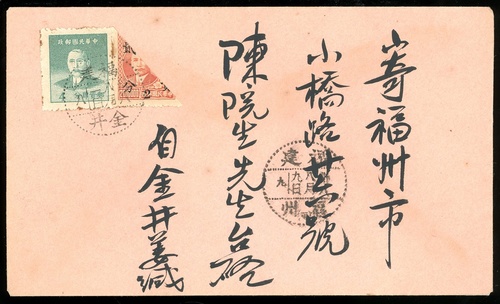 寄福州市
小橋路廿六號
陳院生先生台啓
自金井姜緘
中華民國郵政
貳分
2
金井
福建
福州